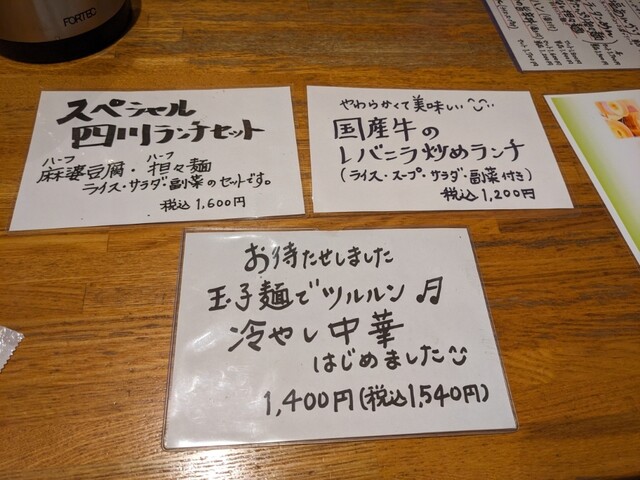 FORTEC
スペシャル
四川ランチセット
ハーフ ハーフ
麻婆豆腐・担々麺
ライス・サラダ・副菜のセットです。
税込 1,600円
やわらかくて美味しい
国産牛の
レバニラ炒めランチ
(ライス・スープ・サラダ・副菜付き)
税込 1,200円
お待たせしました
玉子麺でツルルン♬
冷やし中華
はじめました
1,400円(税込1,540円)